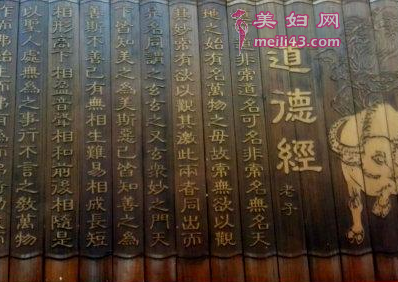 美妇网
meili43.com
道德經
老子
道非常道名可名非常名無名天
地之始有名萬物之母故常無欲以觀
其妙常有欲以觀其徼此兩者同出而
異名同謂之玄玄之又玄衆妙之門天
下皆知美之為美斯惡已皆知善之為
善斯不善已有無相生難易相成長短
相形高下相盈音聲相和前後相隨是
以聖人處無為之事行不言之教萬物